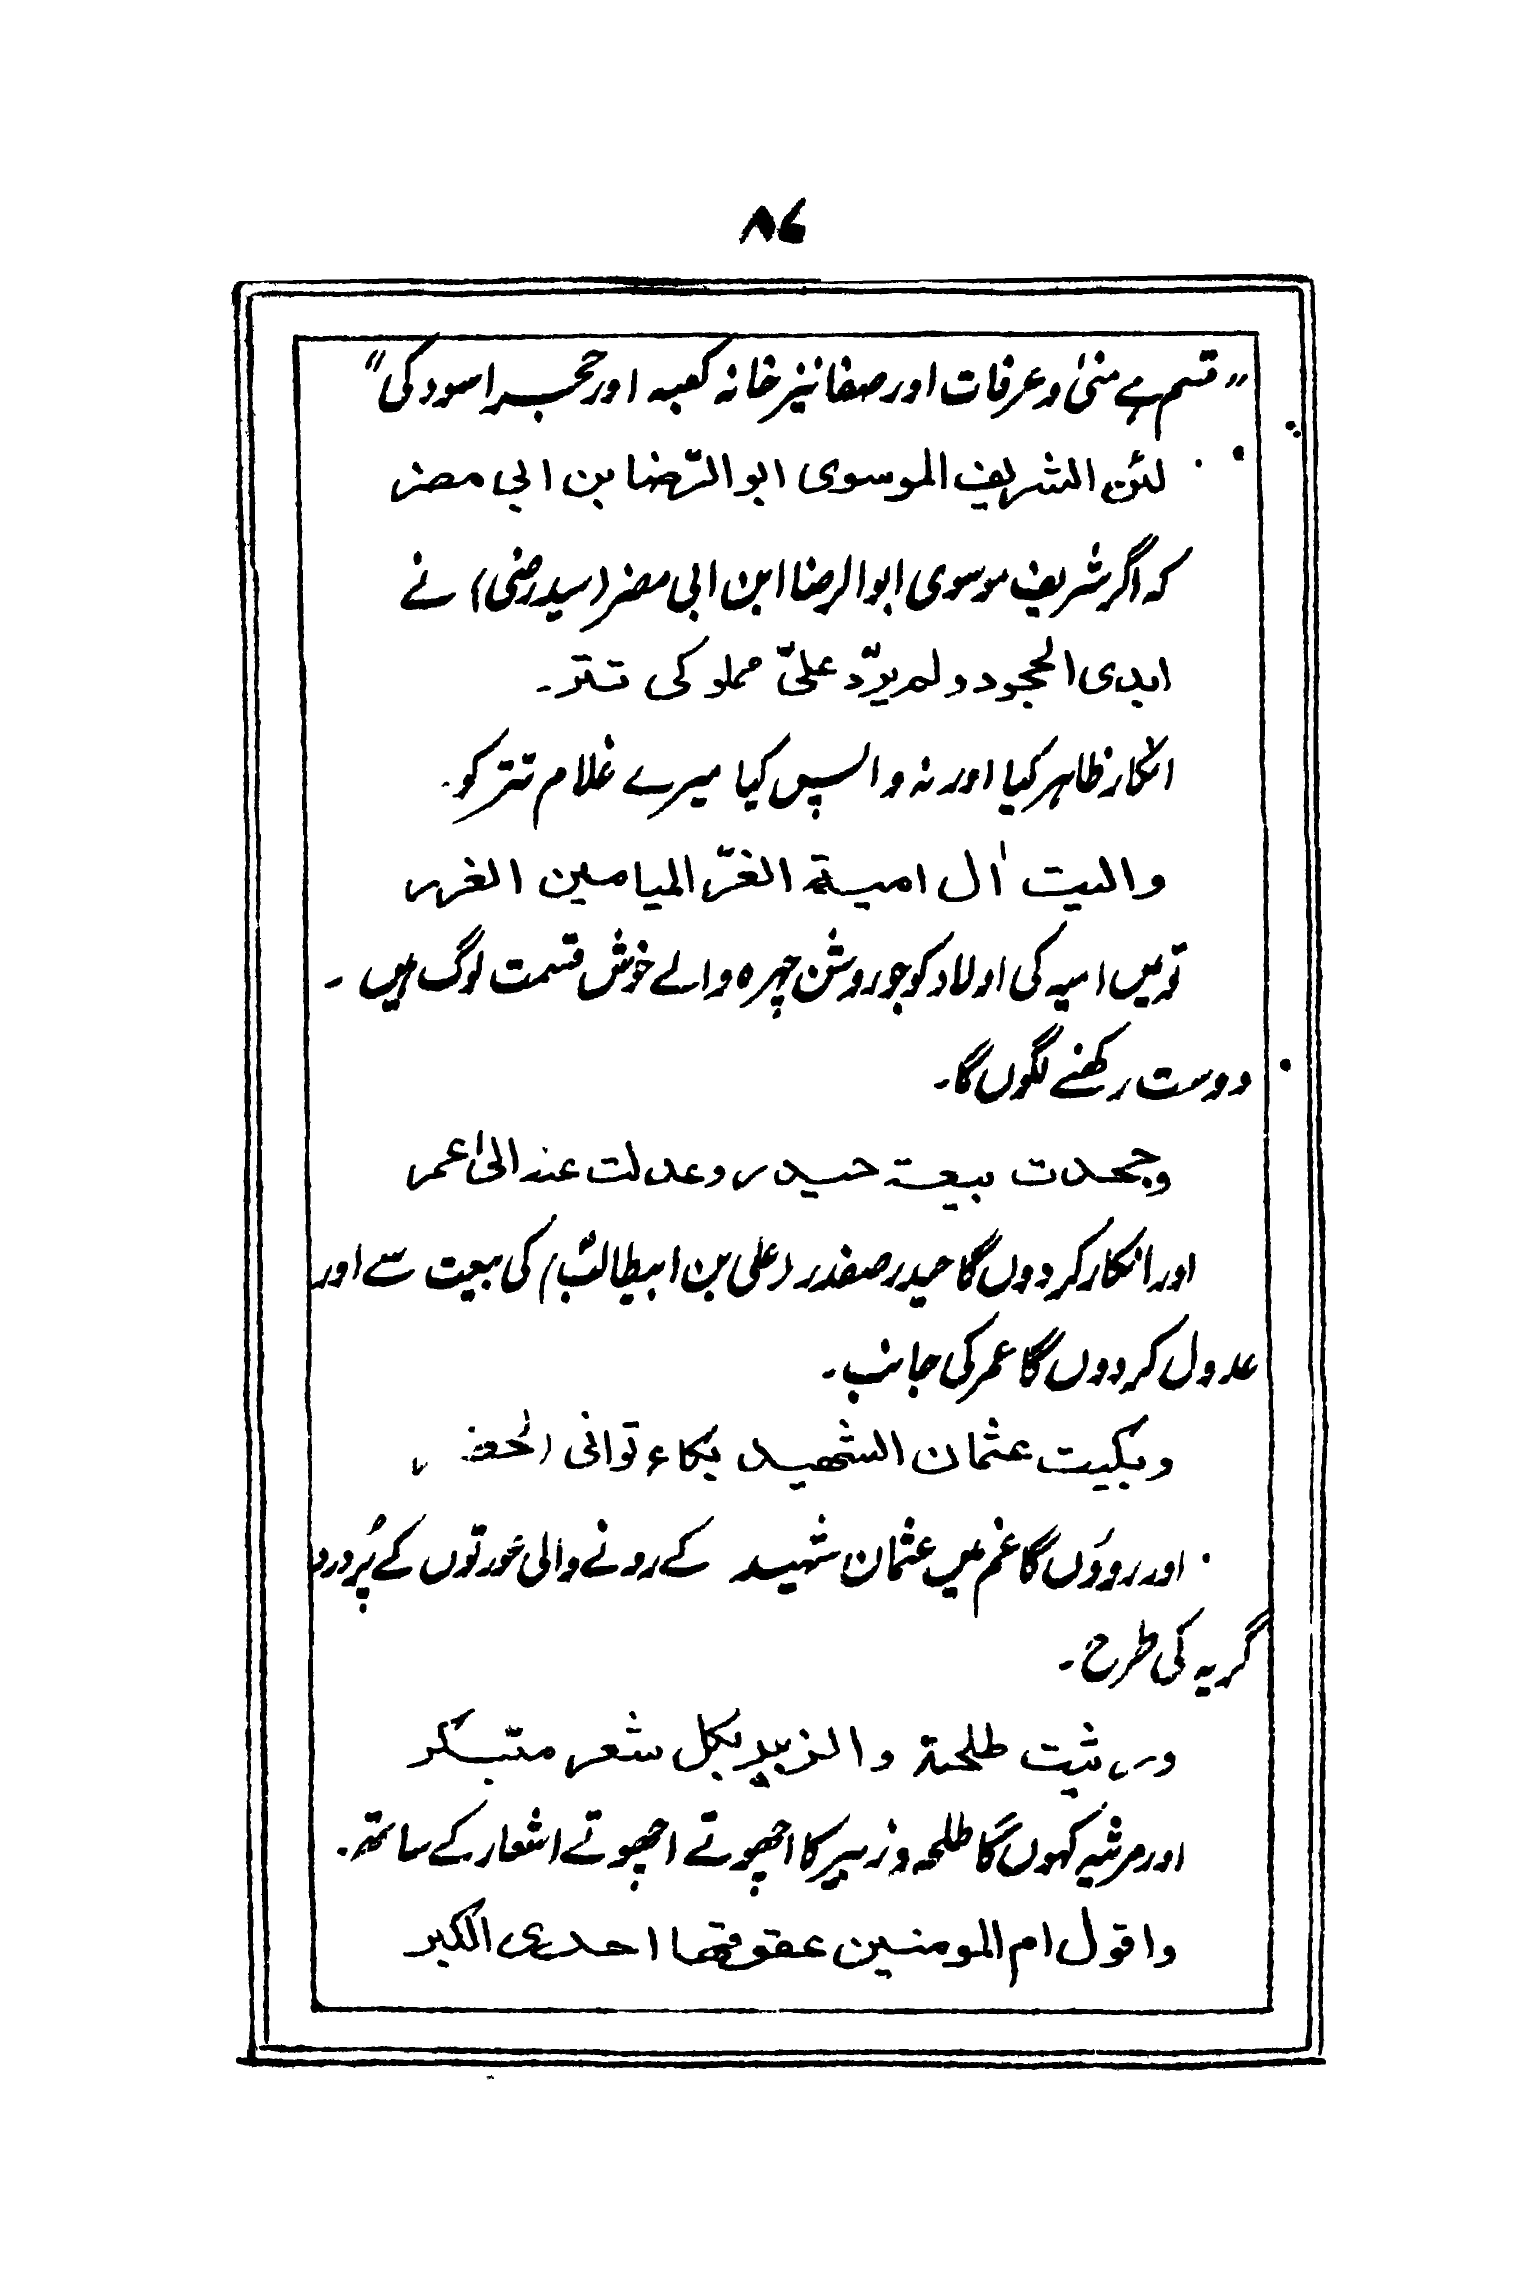 ۸۶
"قسم ہے منیٰ و عرفات اور صفا نیز خانہ کعبہ اور حجر اسود کی"
لئن الشریف الموسوی ابوالرّضا بن ابی مضر
کہ اگر شریف موسوی ابوالرضا ابن ابی مضر (سید رضی) نے
ابدی الحجود ولم یردّ علیّ مملوکی تتر۔
انکار ظاہر کیا اور نہ واپس کیا میرے غلام تتر کو۔
والیت اٰل امیۃ الغرّ المیامین الغرر
تو میں امیہ کی اولاد کو جو روشن چہرہ والے خوش قسمت لوگ ہیں ۔
دوست رکھنے لگوں گا۔
وجحدت بیعۃ حیدر وعدلت عنہ الیٰ عمر
اور انکار کر دوں گا حیدر صفدر (علی بن ابیطالبؑ) کی بیعت سے اور
عدول کر دوں گا عمر کی جانب۔
وبکیت عثمان الشھید بکاء توانی الحضر
اور روؤں گا غم میں عثمان شہید کے رونے والی عورتوں کے پُر درد
گریہ کی طرح ۔
ورثیت طلحۃ والزبیر بکل شعر متبکر
اور مرثیہ کہوں گا طلحہ و زبیر کا اچھوتے اچھوتے اشعار کے ساتھ۔
واقول ام المومنین عقوقھا احدی الکبر